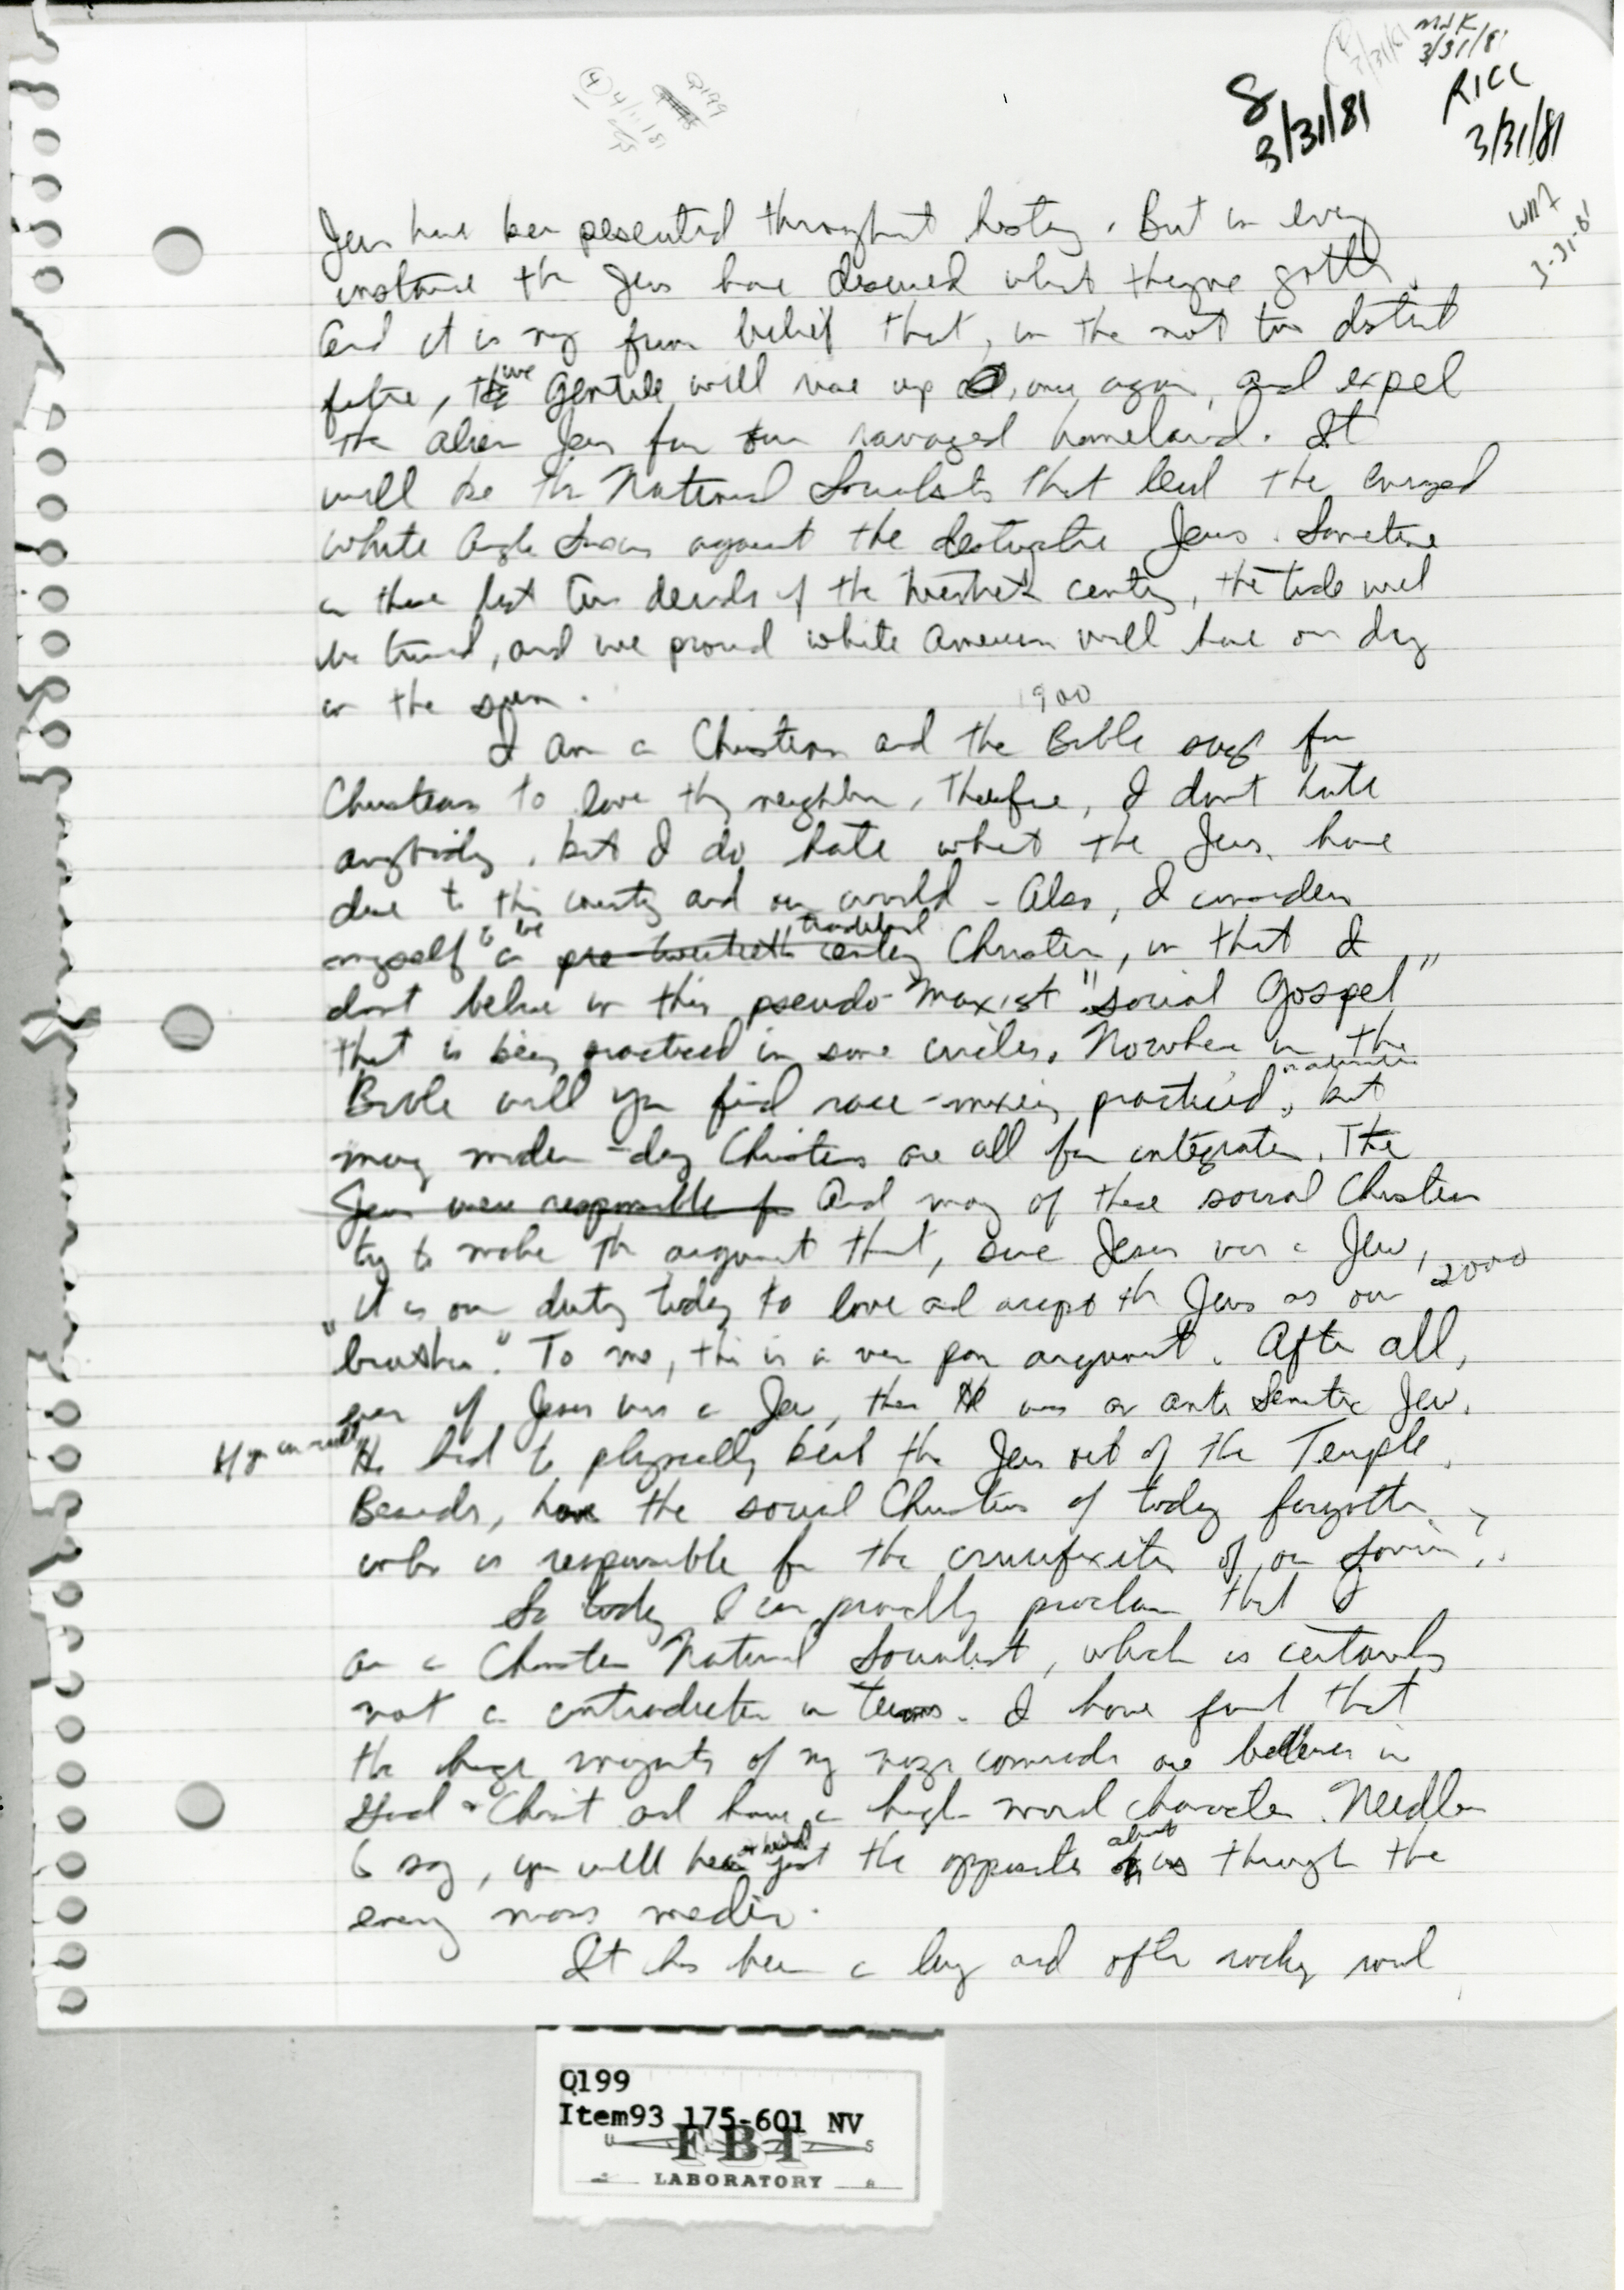 MWK
3/31/81
8
3/31/81
RICC
3/31/81
WMA
3-31-81
Q199
Jews have been persecuted throughout history. But in every
instance the Jews have deserved what they've gotten.
And it is my firm belief that, in the not too distant
future, we Gentiles will rise up, once again, and expel
the alien Jews from our ravaged homeland. It
will be the National Socialists that lead the enraged
white Anglo Saxons against the destructive Jews. Sometime
in these last two decades of the twentieth century, the tide will
be turned, and we proud white Americans will have our day
in the sun.
1900
I am a Christian and the Bible says for
Christians to love thy neighbor, Therefore, I don't hate
anybody, but I do hate what the Jews have
done to this country and our world - Also, I consider
to be traditional
myself a pre-twentieth century Christian, in that I
don't believe in this pseudo-Marxist "social Gospel"
that is being practiced in some circles. Nowhere in the
Bible will you find race-mixing practiced, but
many modern-day Christians are all for integration. The
Jews were responsible for And many of these social Christians
try to make the argument that, since Jesus was a Jew,
2000
"it is our duty today to love and accept the Jews as our
brothers." To me, this is a very poor argument. After all,
even if Jesus was a Jew, then He was an anti Semitic Jew.
If you can recall,
He had to physically beat the Jews out of the Temple.
Besides, have the social Christians of today forgotten
who is responsible for the crucifixion of our Savior?
So today I can proudly proclaim that I
am a Christian National Socialist, which is certainly
not a contradiction in terms. I have found that
the huge majority of my nazi comrades are believers in
God & Christ and have a high moral character. Needless
to say, you will hear or read just the opposite about us through the
enemy mass media.
It has been a long and often rocky road
Q199
Item93 175-601 NV
FBI
LABORATORY